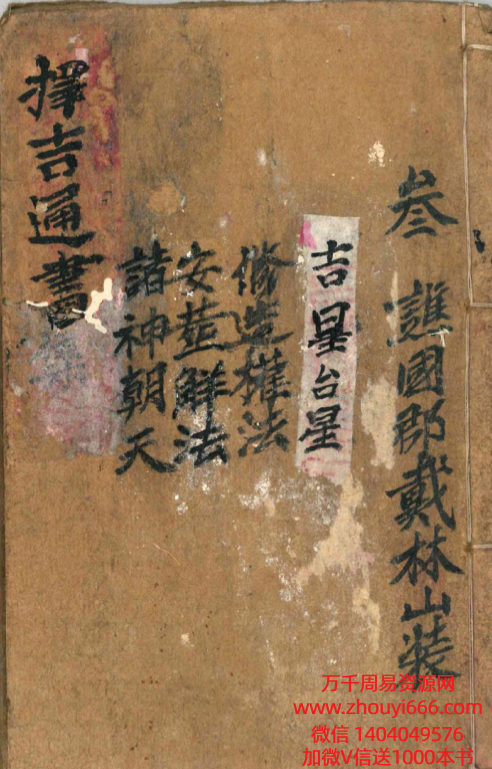 叁 譙國郡戴林山装
吉星台星
修造權法
安塟鮮法
諸神朝天
擇吉通書
万千周易资源网
www.zhouyi666.com
微信 1404049576
加微V信送1000本书